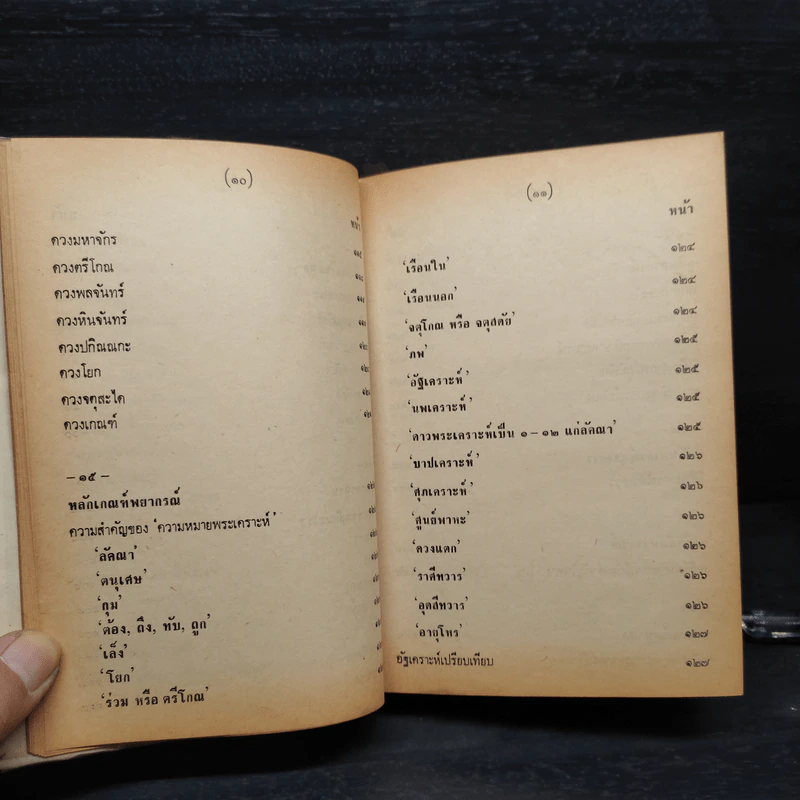 (๑๐)
หน้า
ดวงมหาจักร
ดวงตรีโกณ
ดวงพลจันทร์
ดวงหินจันทร์
ดวงปกิณณกะ
ดวงโยก
ดวงจตุสะได
ดวงเกณฑ์
– ๑๕ –
หลักเกณฑ์พยากรณ์
ความสำคัญของ 'ความหมายพระเคราะห์'
'ลัคณา'
'ตนุเศษ'
'กุม'
'ต้อง, ถึง, ทับ, ถูก'
'เล็ง'
'โยก'
'ร่วม หรือ ตรีโกณ'
(๑๑)
หน้า
'เรือนใน' ๑๒๔
'เรือนนอก' ๑๒๔
'จตุโกณ หรือ จตุสดัย' ๑๒๔
'ภพ' ๑๒๕
'อัฐเคราะห์' ๑๒๕
'นพเคราะห์' ๑๒๕
'ดาวพระเคราะห์เป็น ๑ – ๑๒ แก่ลัคณา' ๑๒๕
'บาปเคราะห์' ๑๒๖
'ศุภเคราะห์' ๑๒๖
'ศูนย์พาหะ' ๑๒๖
'ดวงแตก' ๑๒๖
'ราศีทวาร' ๑๒๖
'อุตสีทวาร' ๑๒๖
'อายุโหร' ๑๒๗
อัฐเคราะห์เปรียบเทียบ ๑๒๗